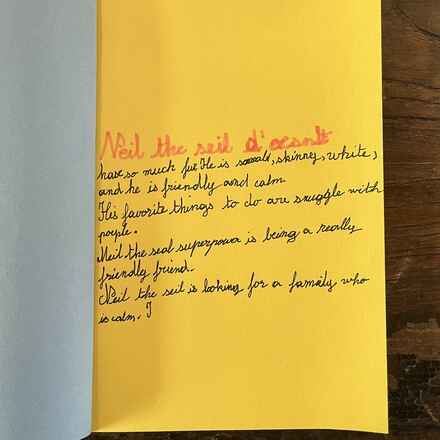 Neil the seil d'oesnt
have so much fur He is smald, skinney, white,
and he is friendly and calm
His favorite things to do are snuggle with
people.
Neil the seal superpowa is being a really
friendly friend.
Neil the seil is looking for a family who
is calm. I